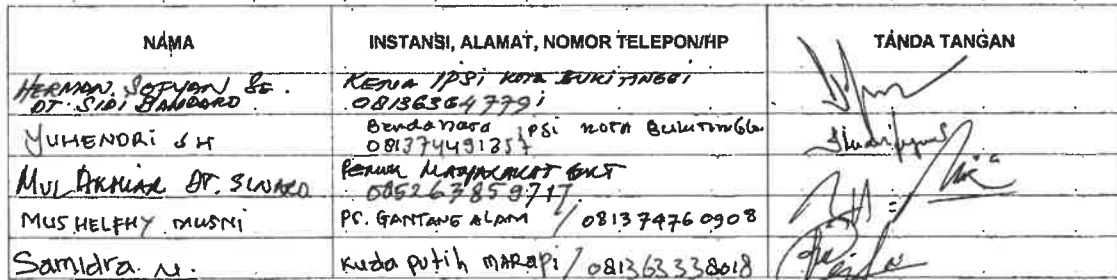 NAMA INSTANSI, ALAMAT, NOMOR TELEPON/HP TANDA TANGAN
HERMAN SOFYAN SE.
DT. SIDI BANDARO
KETUA IPSI KOTA BUKITINGGI
081363647791
YUHENDRI SH
Bendahara IPSI KOTA BUKITTINGGI
081374491357
MUL AKHIAR DT. SINARO
085263859717
MUSHELFHY MUSNI PS. GANTANG ALAM / 081374760908
Samidra. N. Kuda putih MARAPI / 081363338018